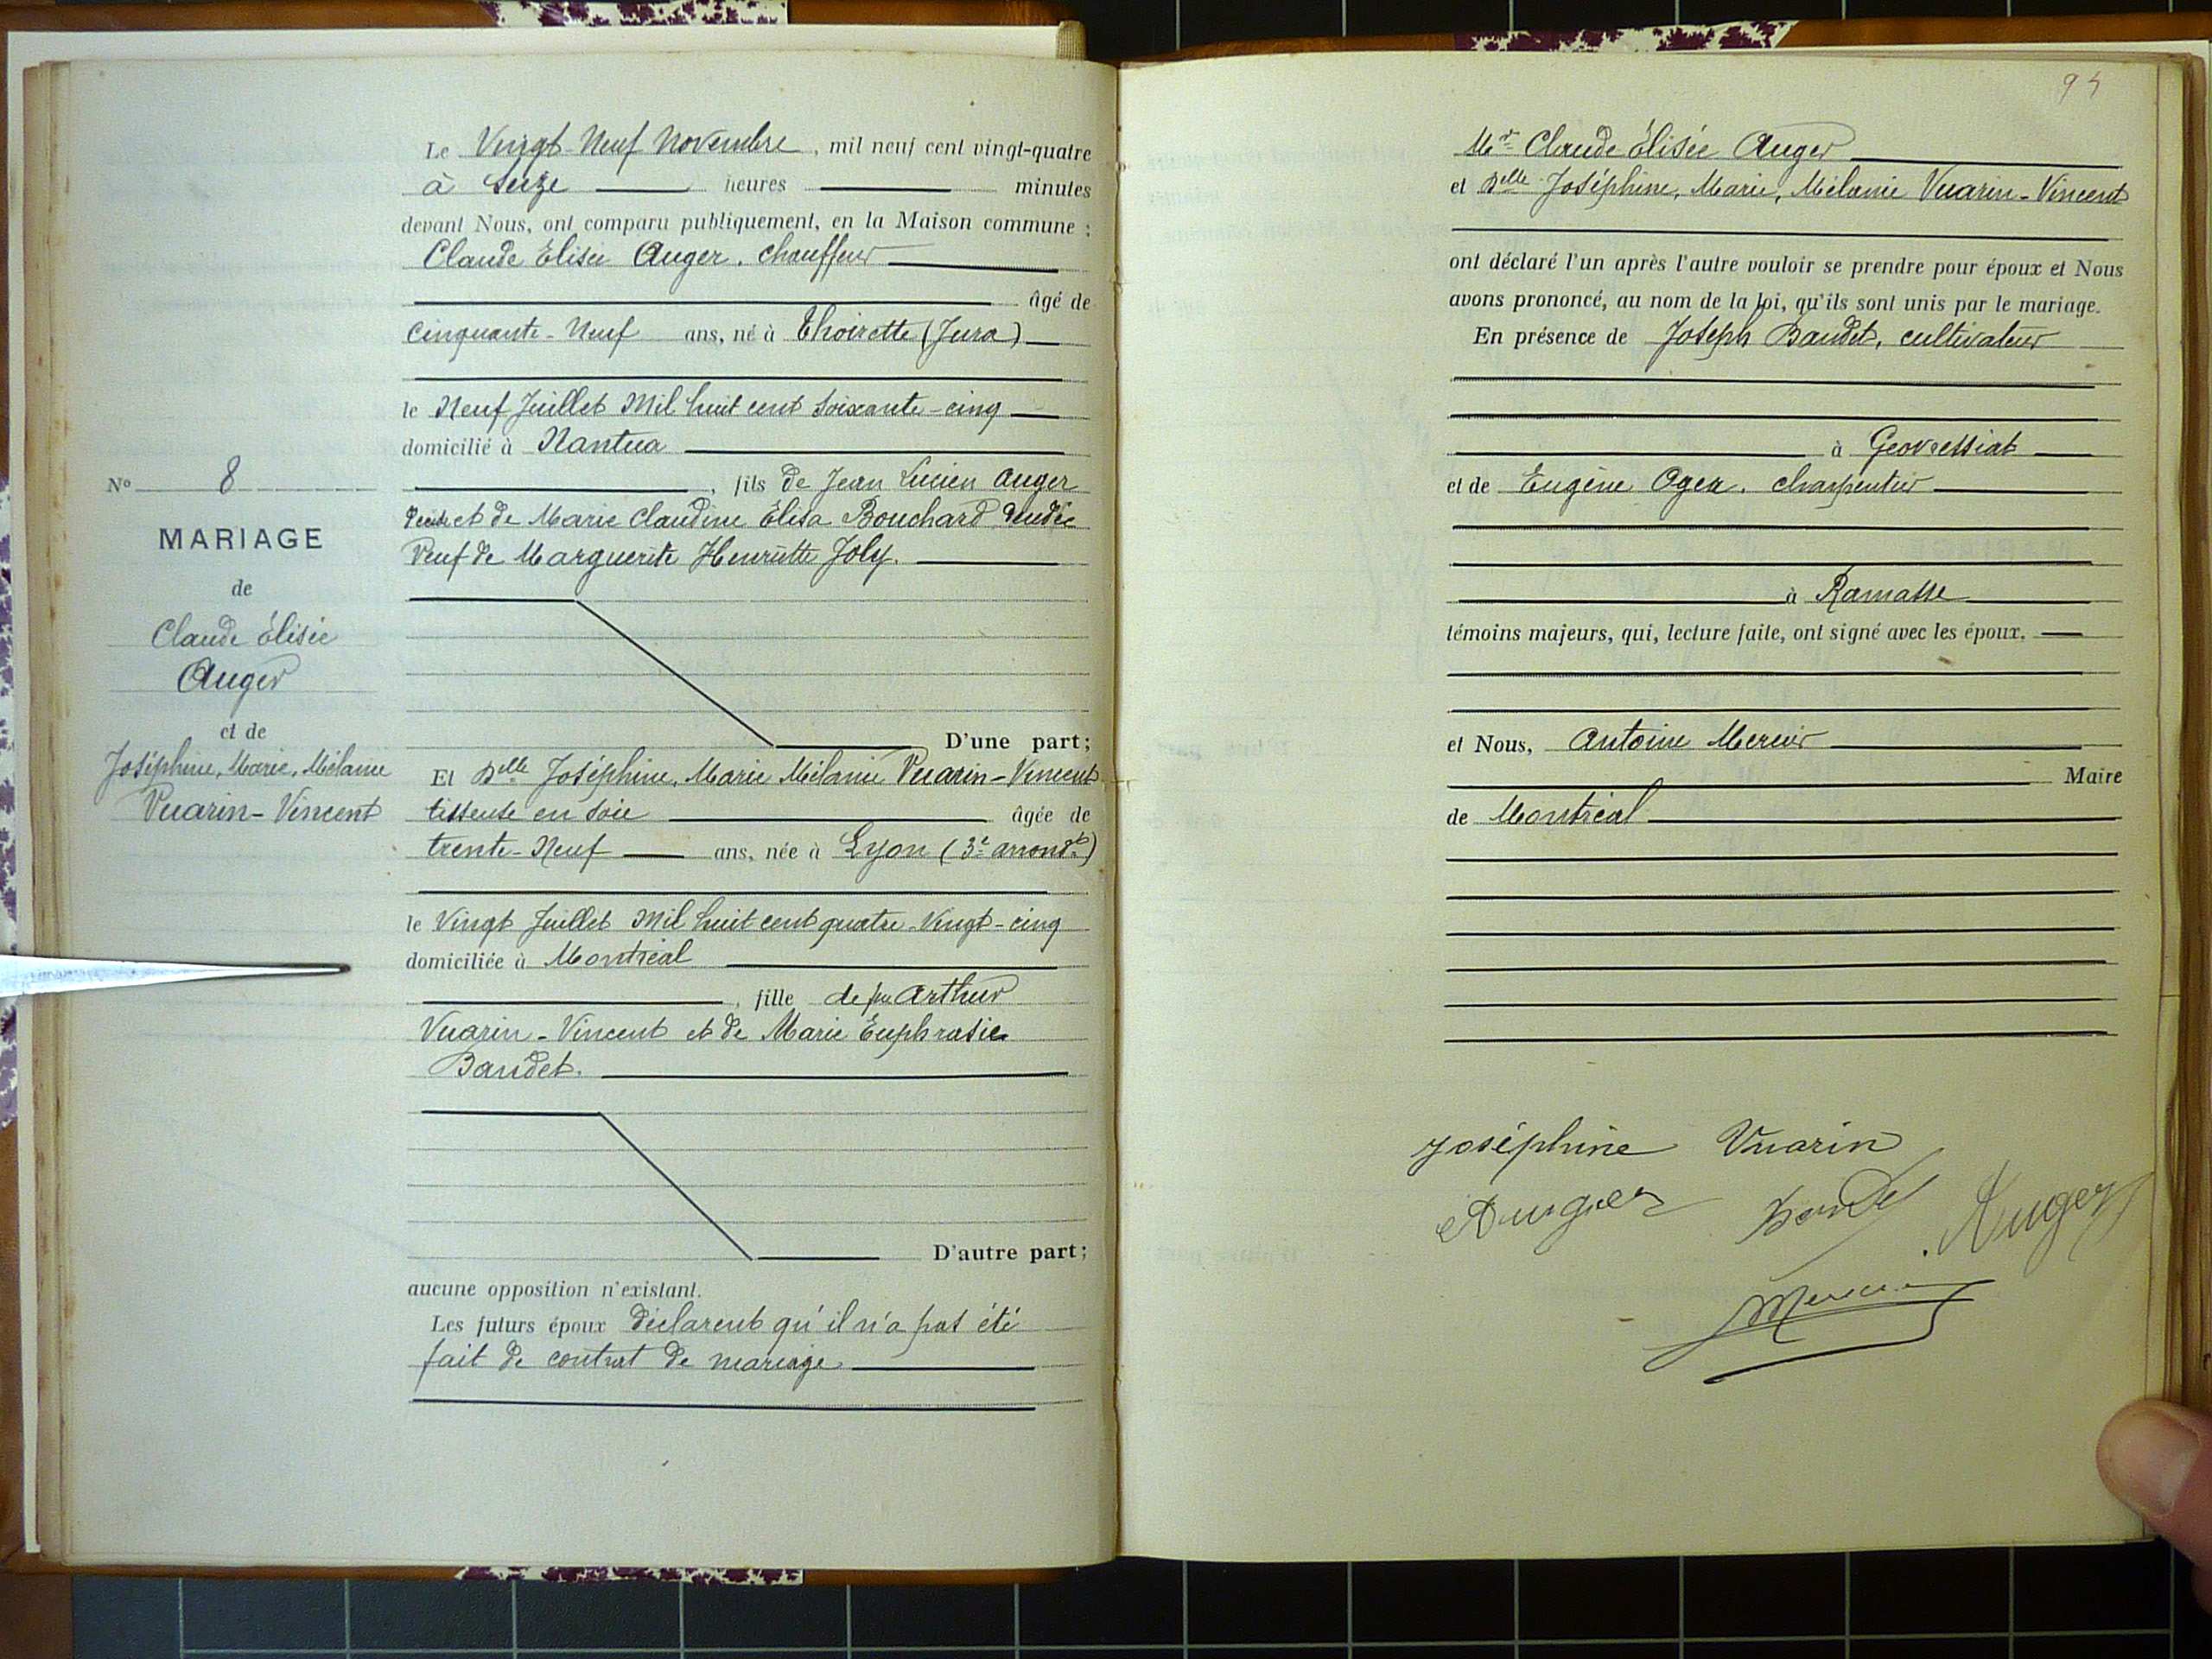 Le Vingt-Neuf Novembre, mil neuf cent vingt-quatre
à Seize heures minutes
devant Nous, ont comparu publiquement, en la Maison commune :
Claude Elisée Auger, chauffeur
âgé de
cinquante-Neuf ans, né à Thoirette (Jura)
le Neuf Juillet Mil huit cent soixante-cinq
domicilié à Nantua
, fils de Jean Lucien Auger
décédé et de Marie Claudine Élisa Bouchard décédée
Veuf de Marguerite Henriette Joly.
D'une part;
Et Delle Joséphine, Marie Mélanie Vuarin-Vincent
tisseuse en soie âgée de
trente-Neuf ans, née à Lyon (3e arrondt)
le Vingt Juillet Mil huit cent quatre-Vingt-cinq
domiciliée à Montréal
, fille de feu Arthur
Vuarin-Vincent et de Marie Euphrasie
Baudet.
D'autre part;
aucune opposition n'existant.
Les futurs époux déclarent qu'il n'a pas été
fait de contrat de mariage
No 8
MARIAGE
de
Claude Élisée
Auger
et de
Joséphine, Marie, Mélanie
Vuarin-Vincent
94
Mr Claude Élisée Auger
et Delle Joséphine, Marie, Mélanie Vuarin-Vincent
ont déclaré l'un après l'autre vouloir se prendre pour époux et Nous
avons prononcé, au nom de la loi, qu'ils sont unis par le mariage.
En présence de Joseph Baudet, cultivateur
à Geovressiat
et de Eugène Oger, charpentier
à Ramasse
témoins majeurs, qui, lecture faite, ont signé avec les époux.
et Nous, Antoine Mercier
Maire
de Montréal
Joséphine Vuarin
Auger
Mercier